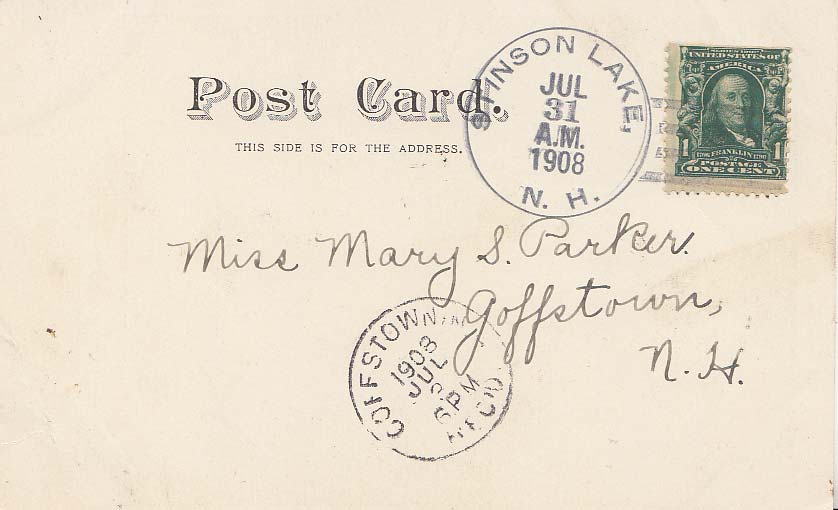 Post Card.
THIS SIDE IS FOR THE ADDRESS.
STINSON LAKE,
JUL
31
A.M.
1908
N. H.
UNITED STATES OF
AMERICA
1 FRANKLIN 1
POSTAGE
ONE CENT
Miss Mary S. Parker.
Goffstown,
N. H.
GOFFSTOWN
1908
JUL
6 PM
REC'D